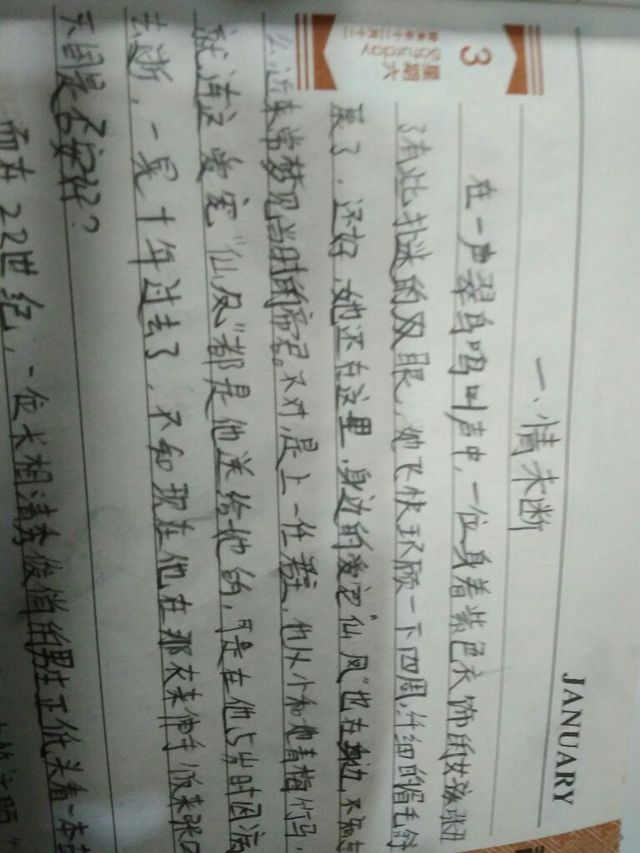 JANUARY
3
星期六
Saturday
一、情未断
在一声翠鸟鸣叫声中,一位身着紫色衣饰的女孩
了有些扑迷的双眼,她飞快环顾一下四周,纤细的眉毛舒
展了,还好,她还在这里,身边的爱宠“仙凤”也在身边,不知
么,近来常梦见当时的不对,是上一任君主,他从小和她青梅竹马,
就连这爱宠“仙凤”都是他送给她的,可是在他5岁时因病
去逝,一晃十年过去了,不知现在他在那衣来伸手饭来张口
天国是否安好?
而在22世纪,一位长相清秀俊俏的男生正低头看一本